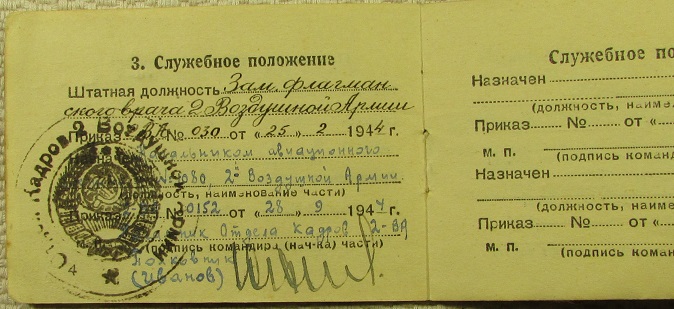 3. Служебное положение
Штатная должность Зам. флагман
ского врача 2 Воздушной Армии
Приказ № 030 от „25„ 2 1944 г.
Назна Начальником авиационного
2й Воздушной Армии
(должность, наименование части)
Приказ № 0152 от „28„ 9 1944 г.
Отдела Кадров 2-ВА
(подпись командира (нач-ка) части)
Полковник
(Иванов)
Отдел Кадров 2 Воздушной Армии
Служебное по
Назначен
(должность, наиме
Приказ № от „
М. П. (подпись коман
Назначен
(должность, наимен
Приказ № от „
М. П. (подпись команд